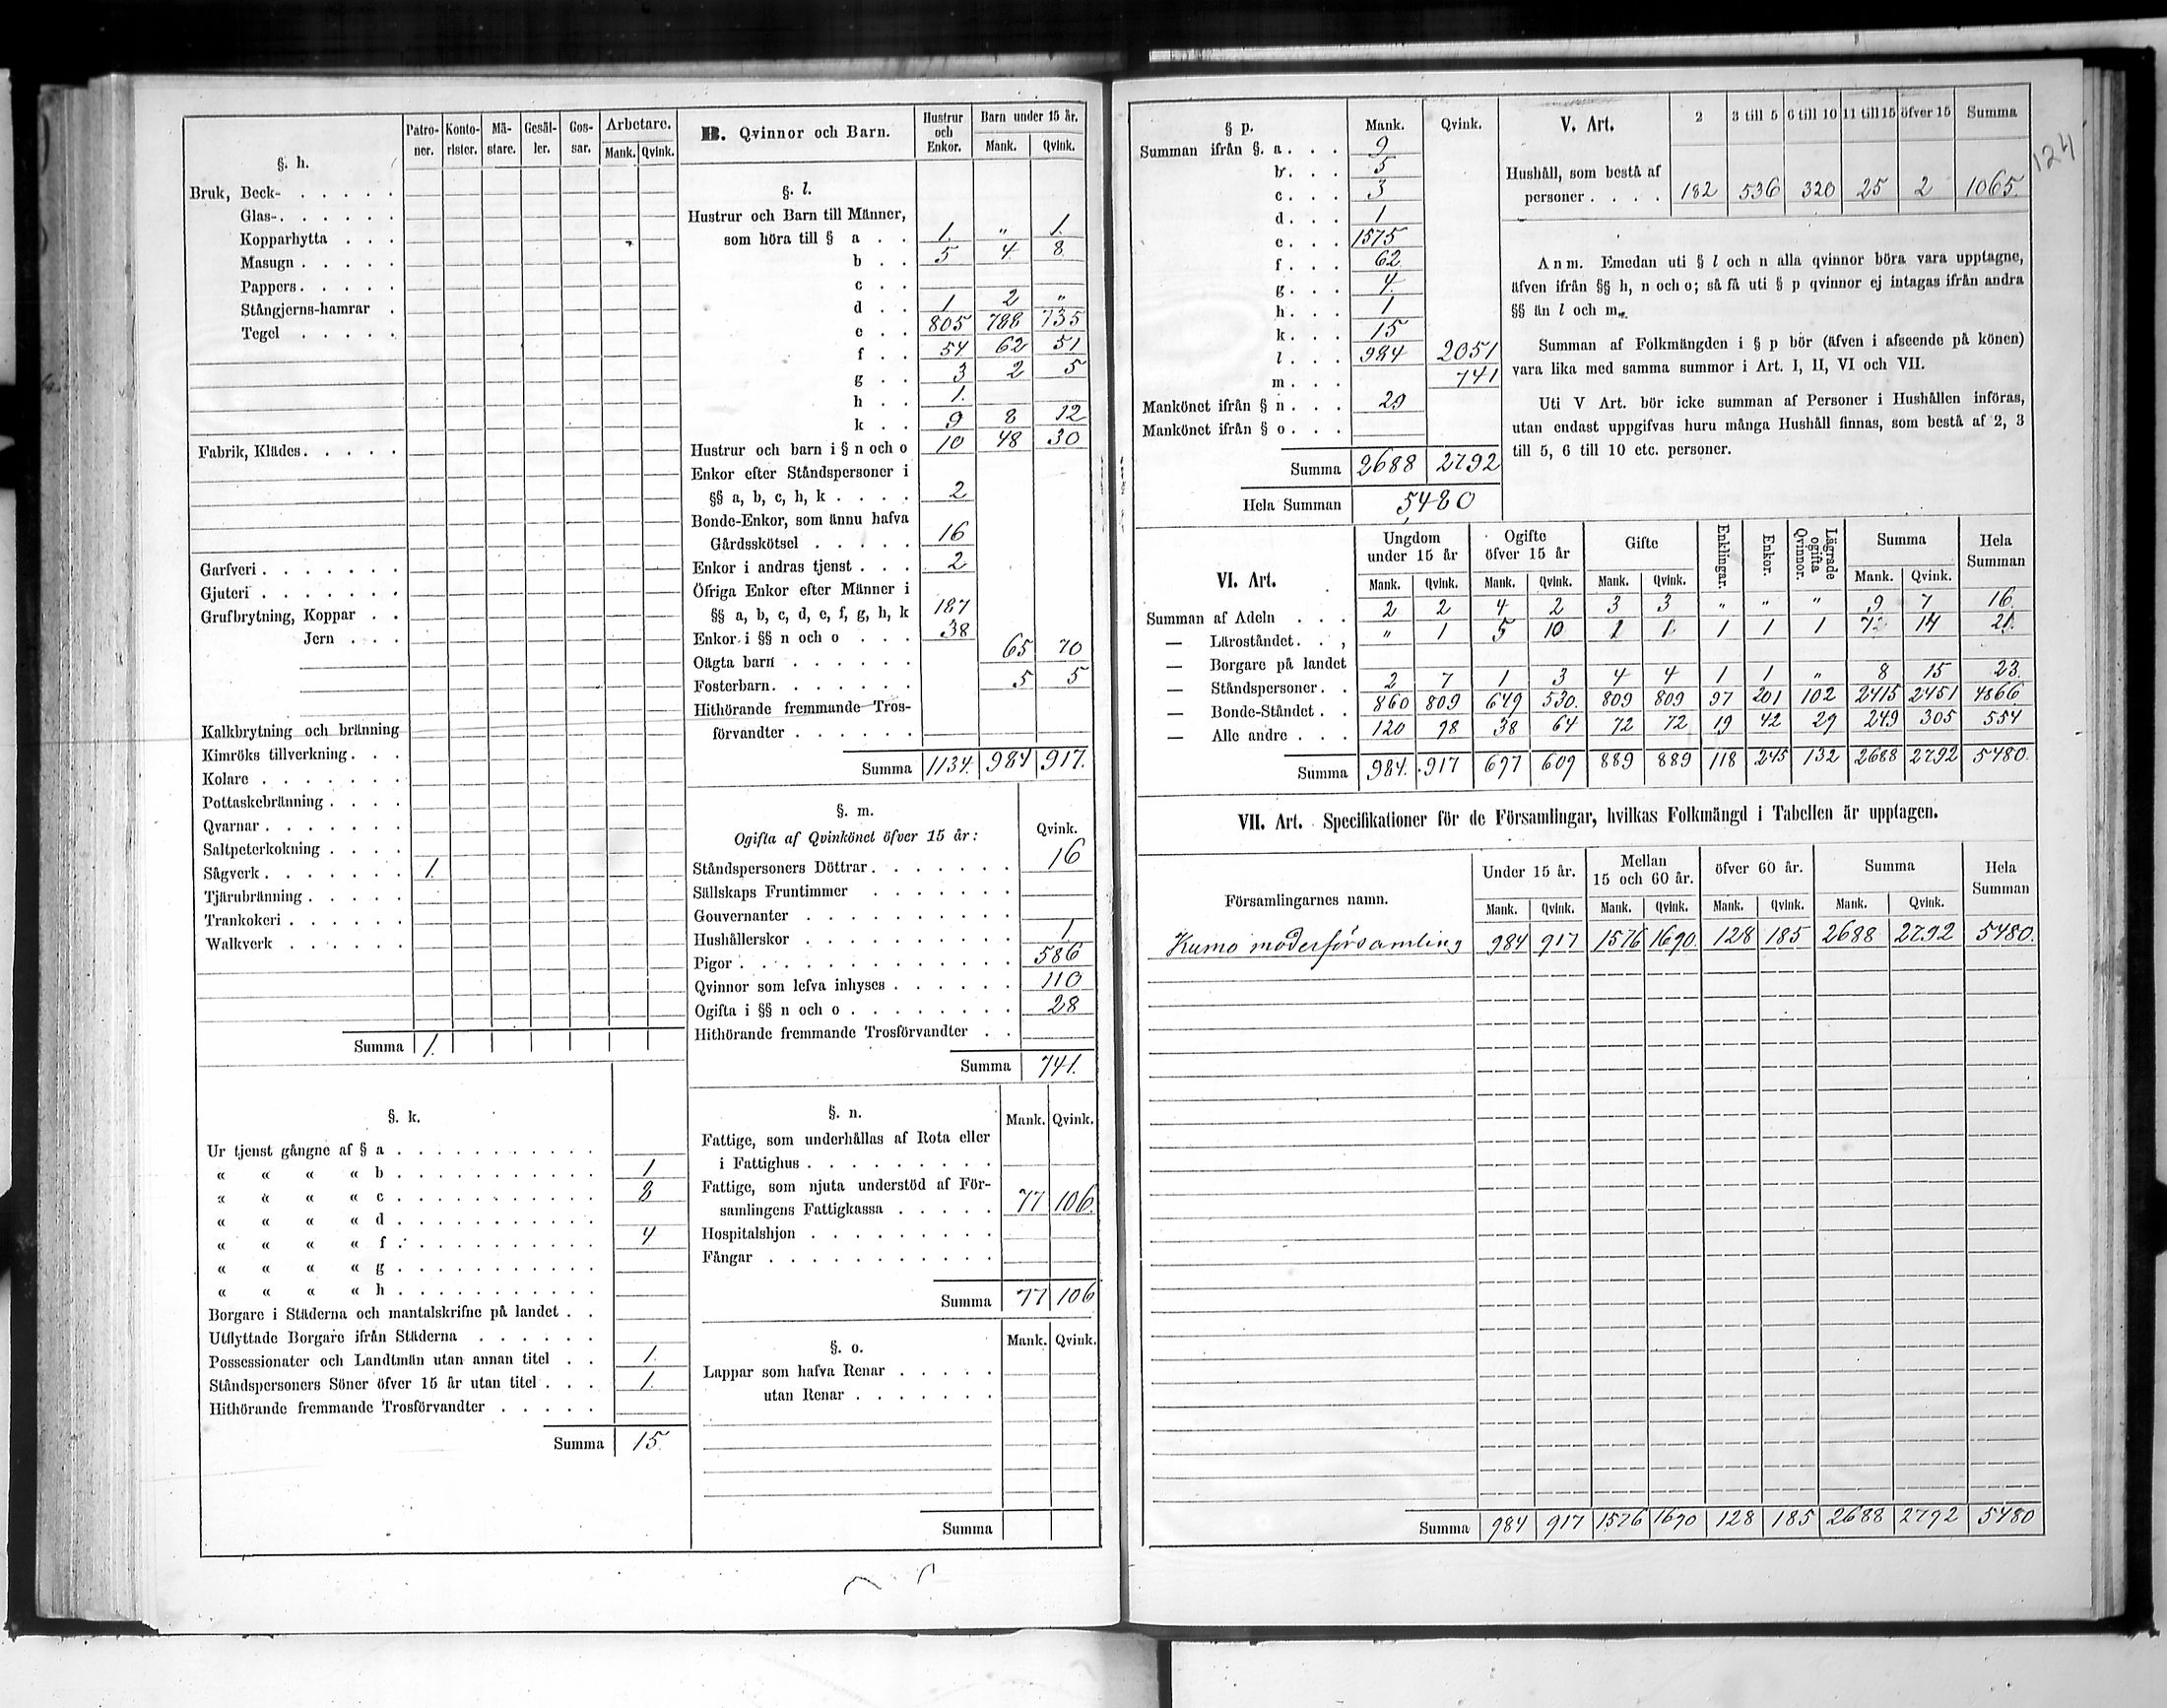 §. h.
Patro-ner. Konto-rister. Mä-stare. Gesäl-ler. Gos-sar. Arbetare. Mank. Qvink.
Bruk, Beck- . . . . .
Glas- . . . . . .
Kopparhytta . . .
Masugn . . . . .
Pappers . . . . .
Stångjerns-hamrar .
Tegel . . . . .
Fabrik, Klädes . . . . .
Garfveri . . . . . . .
Gjuteri . . . . . . .
Grufbrytning, Koppar . .
Jern . . .
Kalkbrytning och bränning
Kimröks tillverkning . . .
Kolare . . . . . . .
Pottaskebränning . . . .
Qvarnar . . . . . . .
Saltpeterkokning . . . .
Sågverk . . . . . . . 1.
Tjärubränning . . . . .
Trankokeri . . . . . .
Walkverk . . . . . .
Summa 1.
§. k.
Ur tjenst gångne af § a . . . . . . . . . . .
« « « « b . . . . . . . . . . . 1
« « « « c . . . . . . . . . . . 8
« « « « d . . . . . . . . . . .
« « « « f . . . . . . . . . . . 4
« « « « g . . . . . . . . . . .
« « « « h . . . . . . . . . . .
Borgare i Städerna och mantalskrifne på landet . .
Utflyttade Borgare ifrån Städerna . . . . . .
Possessionater och Landtmän utan annan titel . . 1.
Ståndspersoners Söner öfver 15 år utan titel . . . 1.
Hithörande fremmande Trosförvandter . . . . .
Summa 15.
B. Qvinnor och Barn.
Hustrur och Enkor. Barn under 15 år. Mank. Qvink.
§. l.
Hustrur och Barn till Männer,
som höra till § a . . 1. " 1.
b . . 5 4 8
c . .
d . . 1 2 "
e . . 805 788 735
f . . 54 62 51
g . . 3 2 5
h . . 1.
k . . 9 8 12
Hustrur och barn i § n och o 10 48 30
Enkor efter Ståndspersoner i
§§ a, b, c, h, k . . . . 2
Bonde-Enkor, som ännu hafva
Gårdsskötsel . . . . . 16
Enkor i andras tjenst . . . 2
Öfriga Enkor efter Männer i
§§ a, b, c, d, e, f, g, h, k 187
Enkor i §§ n och o . . . 38
Oägta barn . . . . . . 65 70
Fosterbarn . . . . . . . 5 5
Hithörande fremmande Tros-
förvandter . . . . . .
Summa 1134. 984 917.
§. m.
Ogifta af Qvinkönet öfver 15 år: Qvink.
Ståndspersoners Döttrar . . . . . . . 16
Sällskaps Fruntimmer . . . . . . .
Gouvernanter . . . . . . . . . .
Hushållerskor . . . . . . . . . . 1
Pigor . . . . . . . . . . . . . 586
Qvinnor som lefva inhyses . . . . . . 110
Ogifta i §§ n och o . . . . . . . . 28
Hithörande fremmande Trosförvandter . .
Summa 741.
§. n. Mank. Qvink.
Fattige, som underhållas af Rota eller
i Fattighus . . . . . . . . .
Fattige, som njuta understöd af För-
samlingens Fattigkassa . . . . . 77 106.
Hospitalshjon . . . . . . . . .
Fångar . . . . . . . . . . .
Summa 77 106
§. o. Mank. Qvink.
Lappar som hafva Renar . . . . .
utan Renar . . . . . . .
Summa
§ p. Mank. Qvink.
Summan ifrån §. a . . . 9
b . . . 5
c . . . 3
d . . . 1
e . . . 1575
f . . . 62
g . . . 4.
h . . . 1
k . . . 15
l . . . 984 2051
m . . . 741
Mankönet ifrån § n . . . 29
Mankönet ifrån § o . . .
Summa 2688 2792
Hela Summan 5480
V. Art. 2 3 till 5 6 till 10 11 till 15 öfver 15 Summa
Hushåll, som bestå af
personer . . . . 182 536 320 25 2 1065.
124
Anm. Emedan uti § l och n alla qvinnor böra vara upptagne,
äfven ifrån §§ h, n och o; så få uti § p qvinnor ej intagas ifrån andra
§§ än l och m.
Summan af Folkmängden i § p bör (äfven i afseende på könen)
vara lika med samma summor i Art. I, II, VI och VII.
Uti V Art. bör icke summan af Personer i Hushållen införas,
utan endast uppgifvas huru många Hushåll finnas, som bestå af 2, 3
till 5, 6 till 10 etc. personer.
VI. Art.
Ungdom under 15 år Ogifte öfver 15 år Gifte Enklingar. Enkor. Lägrade ogifta Qvinnor. Summa Hela Summan
Mank. Qvink. Mank. Qvink. Mank. Qvink. Mank. Qvink.
Summan af Adeln . . . 2 2 4 2 3 3 " " " 9 7 16.
— Läroståndet . . , " 1 5 10 1 1 1 1 1 7 14 21.
— Borgare på landet
— Ståndspersoner . . 2 7 1 3 4 4 1 1 " 8 15 23.
— Bonde-Ståndet . . 860 809 649 530. 809 809 97 201 102 2415 2451 4866
— Alle andre . . . 120 98 38 64 72 72 19 42 29 249 305 554
Summa 984. 917 697 609 889 889 118 245 132 2688 2792 5480.
VII. Art. Specifikationer för de Församlingar, hvilkas Folkmängd i Tabellen är upptagen.
Församlingarnes namn. Under 15 år. Mellan 15 och 60 år. öfver 60 år. Summa Hela Summan
Mank. Qvink. Mank. Qvink. Mank. Qvink. Mank. Qvink.
Kumo moderförsamling 984 917 1576 1690. 128 185 2688 2792 5480.
Summa 984 917 1576 1690 128 185 2688 2792 5480